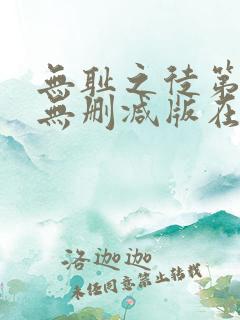 無耻之徒第
無删减版在
洛迦迦
未经同意禁止转载